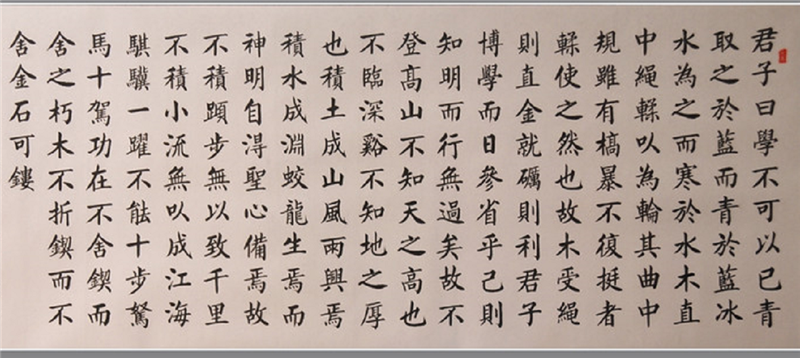 君子曰學不可以已青
取之於藍而青於藍冰
水為之而寒於水木直
中繩輮以為輪其曲中
規雖有槁暴不復挺者
輮使之然也故木受繩
則直金就礪則利君子
博學而日參省乎己則
知明而行無過矣故不
登高山不知天之高也
不臨深谿不知地之厚
也積土成山風雨興焉
積水成淵蛟龍生焉而
神明自淂聖心備焉故
不積蹞步無以致千里
不積小流無以成江海
騏驥一躍不能十步駑
馬十駕功在不舍鍥而
舍之朽木不折鍥而不
舍金石可鏤